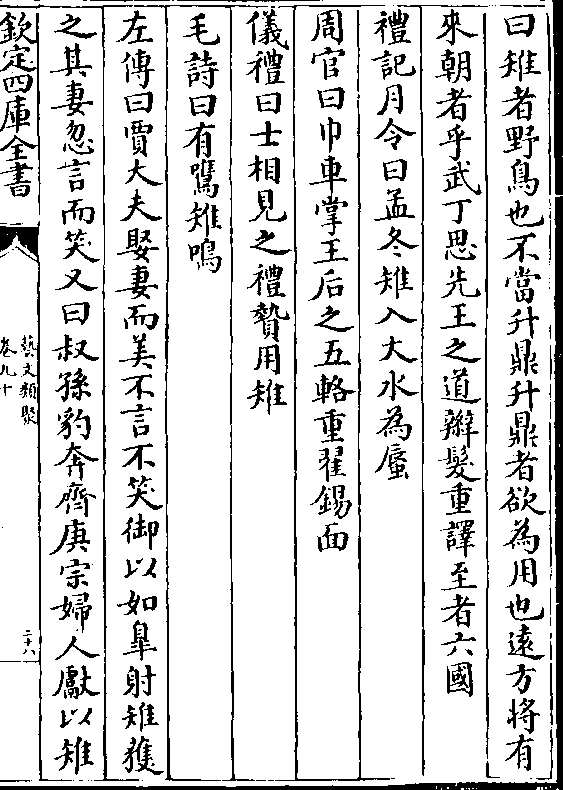 曰雉者野鳥也不當升鼎升鼎者欲為用也遠方將有
來朝者乎武丁思先王之道辮髮重譯至者六國
禮記月令曰孟冬雉入大水為蜃
周官曰巾車掌王后之五輅重翟錫面
儀禮曰士相見之禮贄用雉
毛詩曰有鷕雉鳴
左傳曰賈大夫娶妻而美不言不笑御以如臯射雉獲
之其妻忽言而笑又曰叔孫豹奔齊庚宗婦人獻以雉
欽定四庫全書
藝文類聚
卷九十
二十八